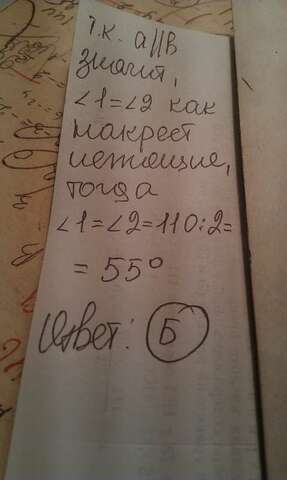 т.к. a||в
значит,
∠1=∠2 как
накрест
лежащие,
тогда
∠1=∠2=110:2=
=55°
Ответ: Б